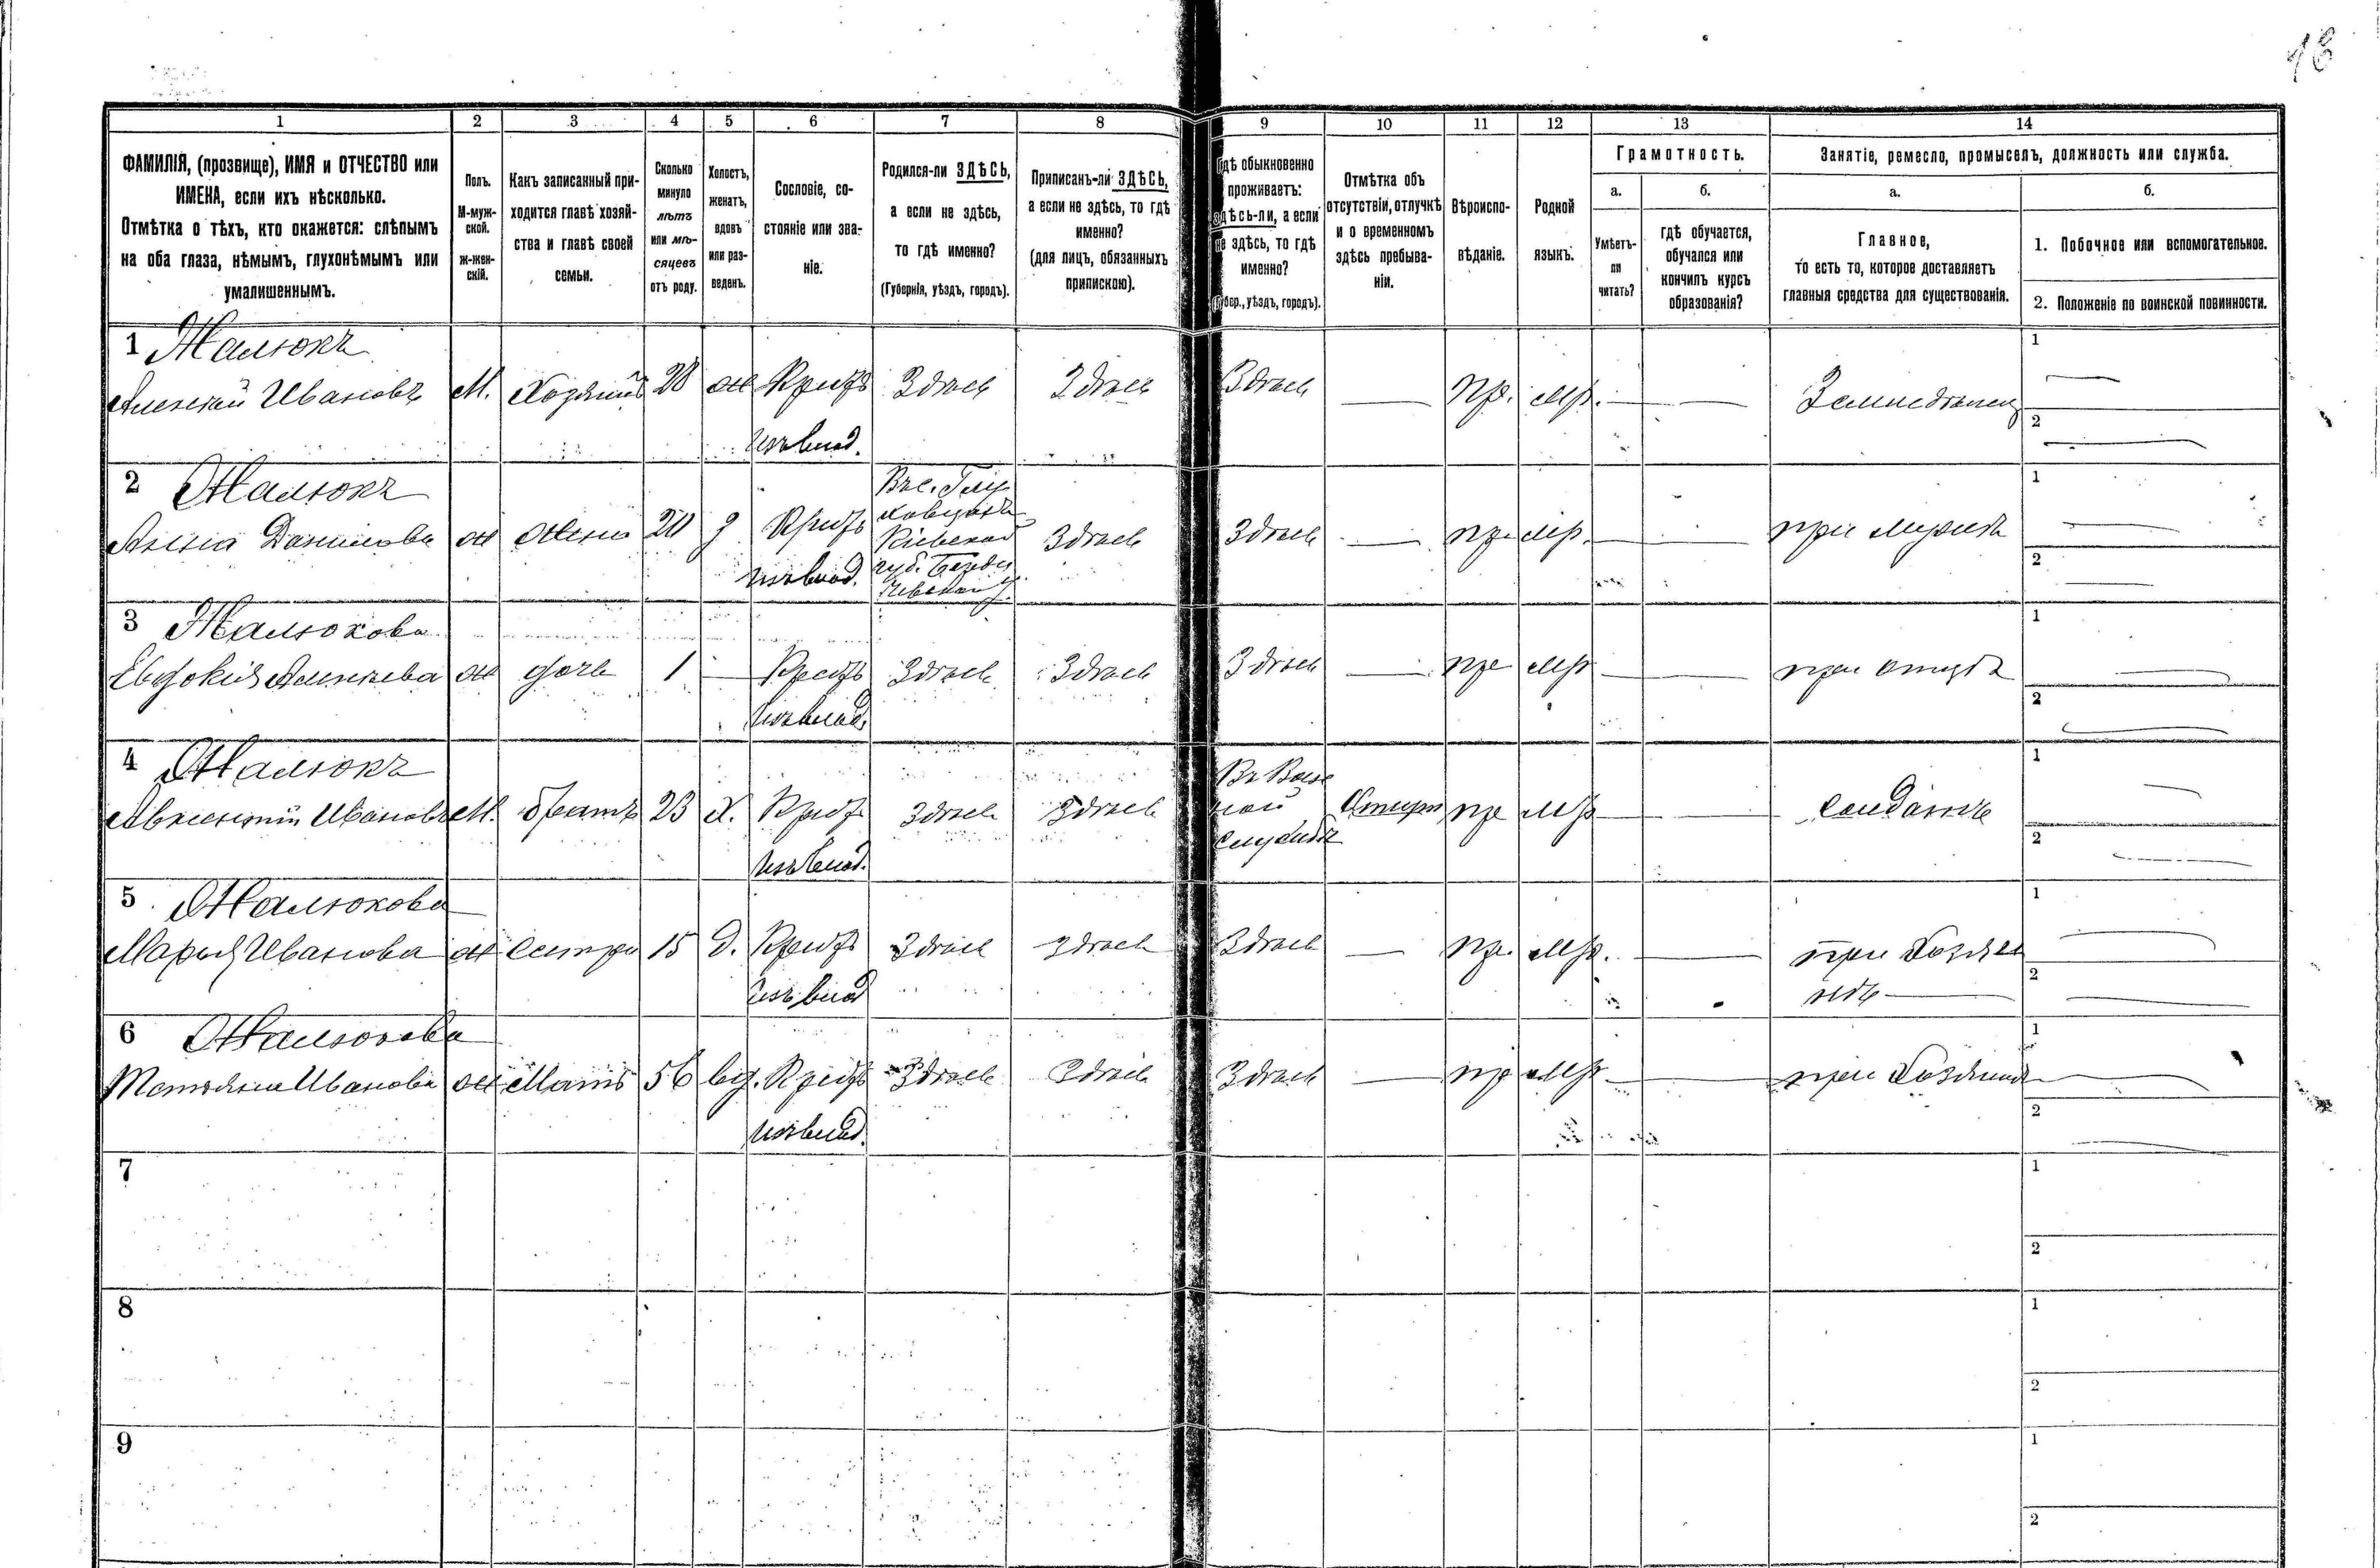 16
1
2
3
4
5
6
7
8
9
10
11
12
13
14
ФАМИЛІЯ, (прозвище), ИМЯ и ОТЧЕСТВО или
ИМЕНА, если ихъ нѣсколько.
Отмѣтка о тѣхъ, кто окажется: слѣпымъ
на оба глаза, нѣмымъ, глухонѣмымъ или
умалишеннымъ.
Полъ.
М-муж-
ской.
ж-жен-
скій.
Какъ записанный при-
ходится главѣ хозяй-
ства и главѣ своей
семьи.
Сколько
минуло
лѣтъ
или мѣ-
сяцевъ
отъ роду.
Холостъ,
женатъ,
вдовъ
или раз-
веденъ.
Сословіе, со-
стояніе или зва-
ніе.
Родился-ли ЗДѢСЬ,
а если не здѣсь,
то гдѣ именно?
(Губернія, уѣздъ, городъ).
Приписанъ-ли ЗДѢСЬ,
а если не здѣсь, то гдѣ
именно?
(для лицъ, обязанныхъ
припискою).
Гдѣ обыкновенно
проживаетъ:
здѣсь-ли, а если
не здѣсь, то гдѣ
именно?
(Губер., уѣздъ, городъ).
Отмѣтка объ
отсутствіи, отлучкѣ
и о временномъ
здѣсь пребыва-
ніи.
Вѣроиспо-
вѣданіе.
Родной
языкъ.
Грамотность.
а.
Умѣетъ-
ли
читать?
б.
гдѣ обучается,
обучался или
кончилъ курсъ
образованія?
Занятіе, ремесло, промыселъ, должность или служба.
а.
Главное,
то есть то, которое доставляетъ
главныя средства для существованія.
б.
1. Побочное или вспомогательное.
2. Положеніе по воинской повинности.
1 Малюкъ
Алексѣй Ивановъ М. Хозяинъ 28 ж Крест Здѣсь Здѣсь Здѣсь Пр. Мр. Земледѣлец 1
изъ влад. 2
2 Малюкъ
Анна Данилова ж жена 20 Крест Здѣсь Здѣсь пр мр. при мужѣ 1
Кіевской
губ.
изъ влад. 2
3 Малюкова
Евдокія Алексѣева ж дочь 1 Крест Здѣсь Здѣсь Здѣсь пр мр при отцѣ 1
изъ влад. 2
4 Малюкъ
Авксентій Ивановъ М. братъ 23 Х. Крест Здѣсь Здѣсь пр мр Солдатъ 1
Въ Воен
ной
службѣ
изъ влад. 2
5 Малюкова
Марья Иванова ж Сестра 15 д. Крест Здѣсь Здѣсь Здѣсь пр. мр. при Хозяи 1
изъ влад нѣ 2
6 Малюкова
Татьяна Иванова ж Мать 56 вд. Крест Здѣсь Здѣсь Здѣсь пр мр при Хозяинѣ 1
изъ влад. 2
7
1
2
8
1
2
9
1
2